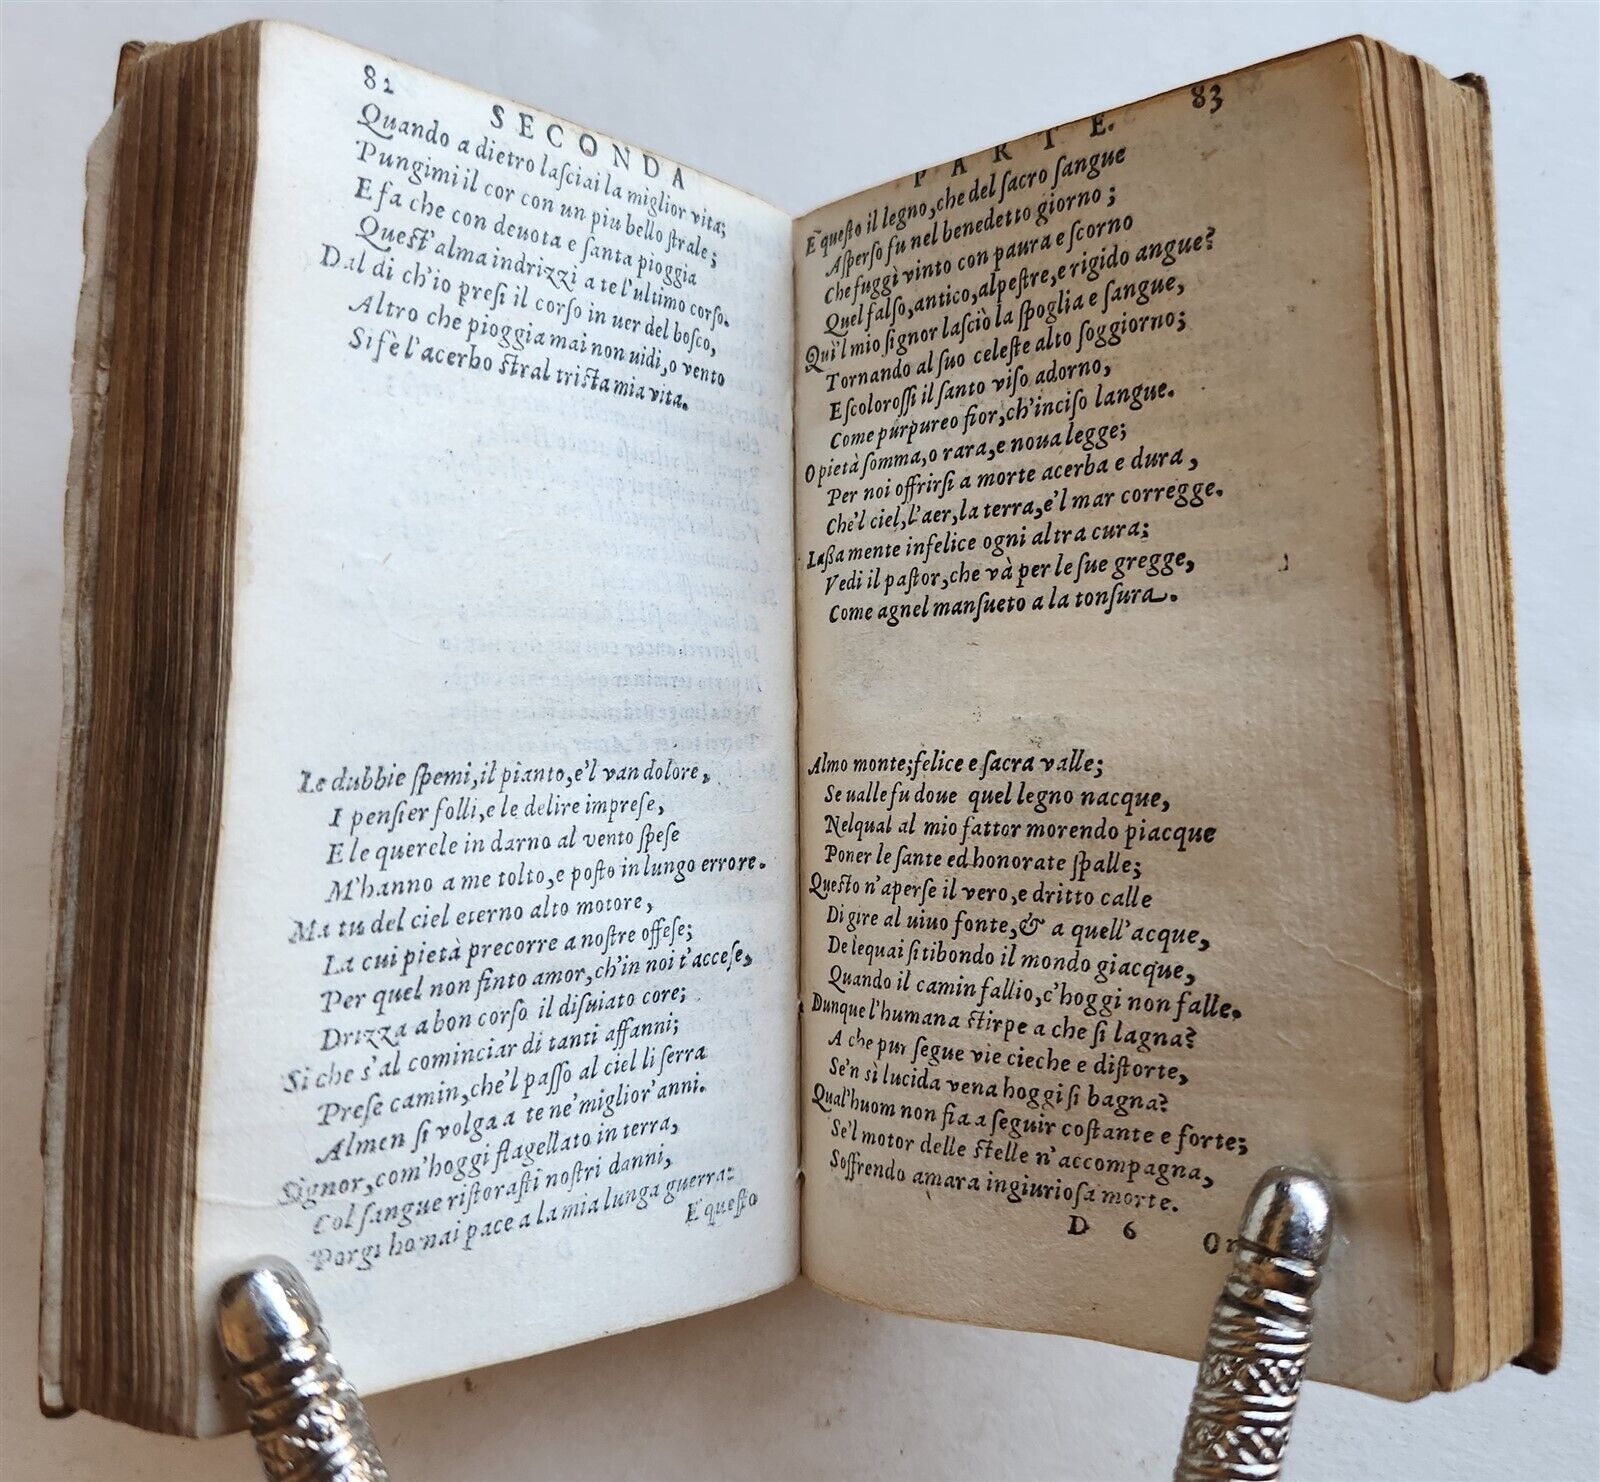 82
SECONDA
Quando a dietro laſciai la miglior vita;
Pungimi il cor con un piu bello ſtrale;
E fa che con deuota e ſanta pioggia
Queſt'alma indrizzi a te l'ultimo corſo.
Dal di ch'io preſi il corſo in uer del boſco,
Altro che pioggia mai non uidi, o vento
Si fè l'acerbo ſtral triſta mia vita.
Le dubbie ſpemi, il pianto, e'l van dolore,
I penſier folli, e le delire impreſe,
E le querele in darno al vento ſpeſe
M'hanno a me tolto, e poſto in lungo errore.
Ma tu del ciel eterno alto motore,
La cui pietà precorre a noſtre offeſe;
Per quel non finto amor, ch'in noi t'acceſe,
Drizza a bon corſo il diſuiato core;
Si che s'al cominciar di tanti affanni;
Preſe camin, che'l paſſo al ciel li ſerra
Almen ſi volga a te ne' miglior' anni.
Signor, com'hoggi flagellato in terra,
Col ſangue riſtoraſti noſtri danni,
Porgi homai pace a la mia lunga guerra:
E queſto
PARTE.
83
E queſto il legno, che del ſacro ſangue
Aſperſo fu nel benedetto giorno;
Che fuggì vinto con paura e ſcorno
Quel falſo, antico, alpeſtre, e rigido angue?
Qui'l mio ſignor laſciò la ſpoglia e ſangue,
Tornando al ſuo celeſte alto ſoggiorno;
E ſcoloroſſi il ſanto viſo adorno,
Come purpureo fior, ch'inciſo langue.
O pietà ſomma, o rara, e noua legge;
Per noi offrirſi a morte acerba e dura,
Che'l ciel, l'aer, la terra, e'l mar corregge.
Laßa mente infelice ogni altra cura;
Vedi il paſtor, che và per le ſue gregge,
Come agnel manſueto a la tonſura.
Almo monte; felice e ſacra valle;
Se ualle fu doue quel legno nacque,
Nelqual al mio fattor morendo piacque
Poner le ſante ed honorate ſpalle;
Queſto n'aperſe il vero, e dritto calle
Di gire al uiuo fonte, & a quell'acque,
De lequai ſitibondo il mondo giacque,
Quando il camin fallio, c'hoggi non falle.
Dunque l'humana ſtirpe a che ſi lagna?
A che pur ſegue vie cieche e diſtorte,
Se'n sì lucida vena hoggi ſi bagna?
Qual'huom non fia a ſeguir coſtante e forte;
Se'l motor delle ſtelle n'accompagna,
Soffrendo amara ingiurioſa morte.
D 6